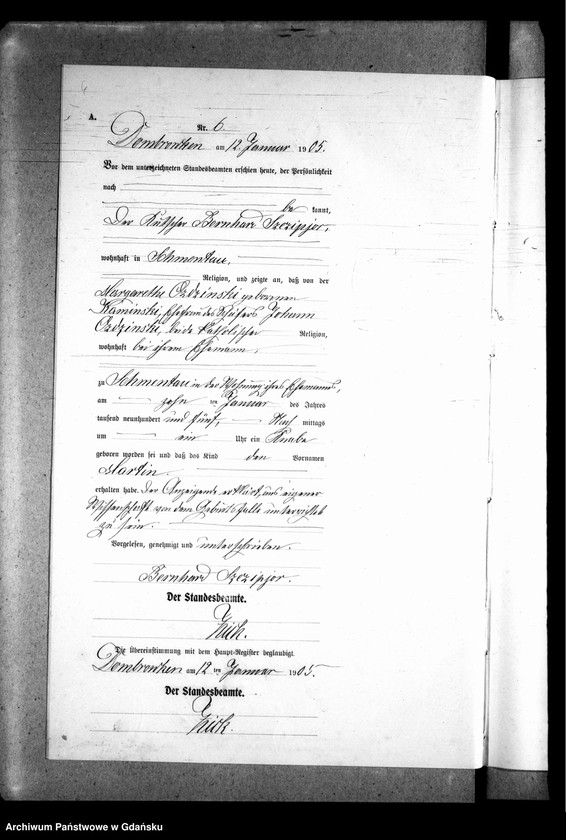 A.
Nr. 6.
Dombrowken am 12. Januar 1905.
Vor dem unterzeichneten Standesbeamten erschien heute, der Persönlichkeit
nach
be kannt,
Der Kutscher Bernhard Szczipjor,
wohnhaft in Schmentau,
Religion, und zeigte an, daß von der
Margarethe Ozdzinski geborenen
Kaminski, Ehefrau des Johann
Ozdzinski, beide katholischer Religion,
wohnhaft bei ihrem Ehemann,
zu Schmentau in der Wohnung ihres Ehemannes,
am zehn ten Januar des Jahres
tausend neunhundert und fünf, Nach mittags
um ein Uhr ein Knabe
geboren worden sei und daß das Kind den Vornamen
Martin
erhalten habe. Der Anzeigende erklärt, aus eigener
Wissenschaft von dem Geburtsfalle unterrichtet
zu sein.
Vorgelesen, genehmigt und unterschrieben.
Bernhard Szczipjor.
Der Standesbeamte.
Zück.
Die Übereinstimmung mit dem Haupt-Register beglaubigt.
Dombrowken am 12 ten Januar 1905.
Der Standesbeamte.
Zück.
Archiwum Państwowe w Gdańsku